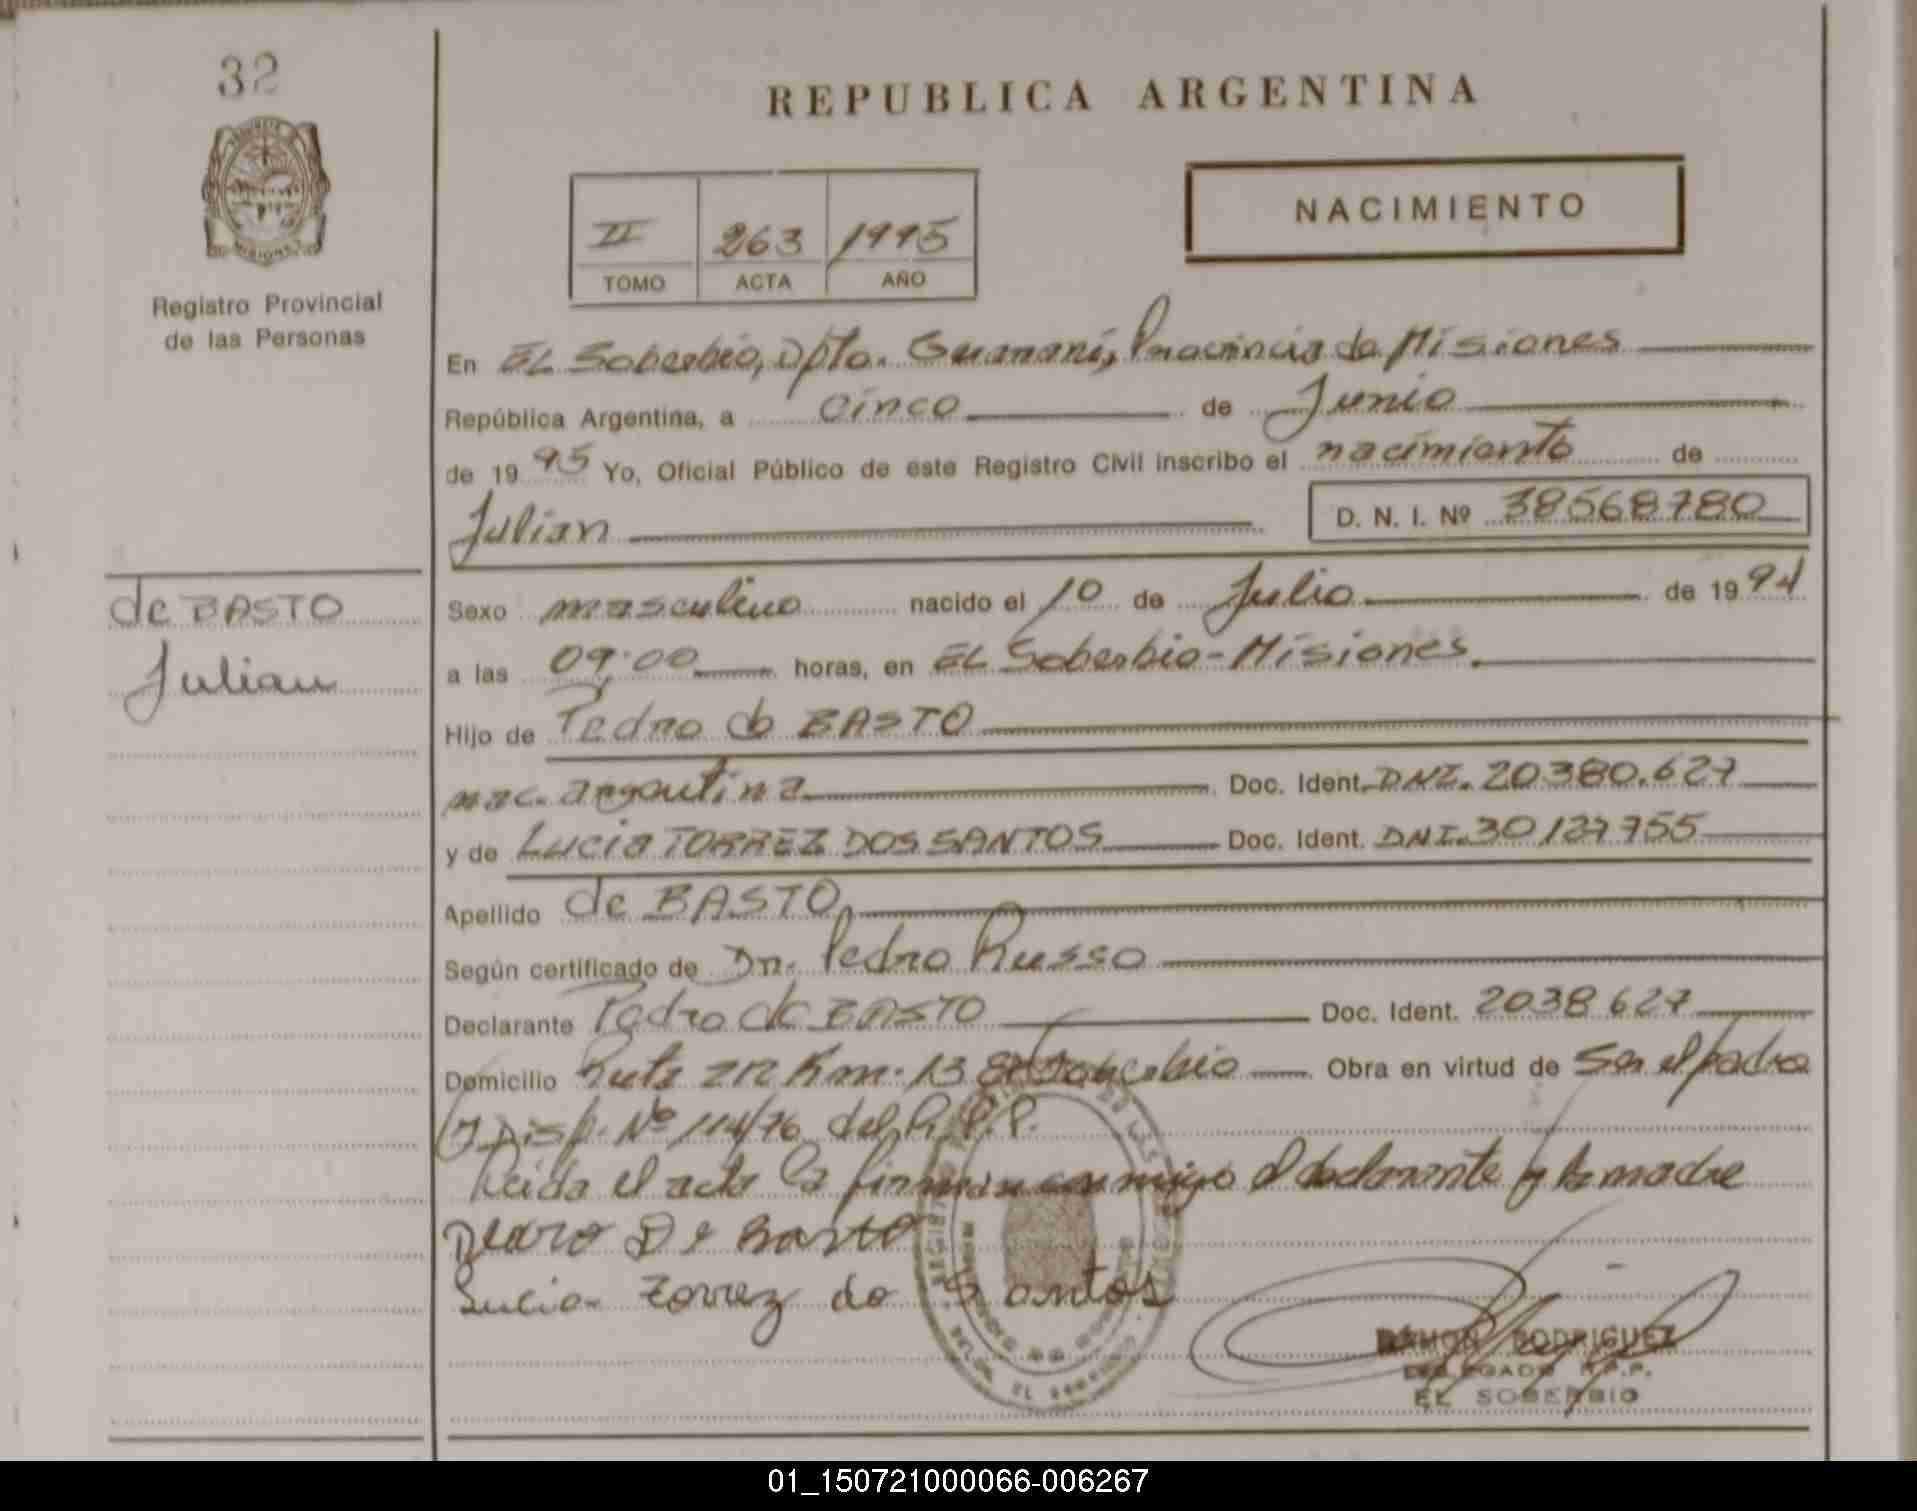 32
REPUBLICA ARGENTINA
NACIMIENTO
II 263 1995
TOMO ACTA AÑO
Registro Provincial
de las Personas
En EL Soberbio, Dpto. Guaraní, Provincia de Misiones
República Argentina, a cinco de Junio
de 19 95 Yo, Oficial Público de este Registro Civil inscribo el nacimiento de
Julian D. N. I. Nº 38568780
de BASTO
Julian
Sexo masculino nacido el 10 de Julio de 19 94
a las 09:00 horas, en EL Soberbio-Misiones.
Hijo de Pedro de BASTO
nac. argentina Doc. Ident. DNI. 20380.627
y de Lucia TORREZ DOS SANTOS Doc. Ident. DNI. 30127755
Apellido de BASTO
Según certificado de Dr. Pedro Russo
Declarante Pedro de BASTO Doc. Ident. 2038 627
Domicilio Ruta 212 Km. 13 El Soberbio Obra en virtud de ser el padre
y Disp. Nº 114/76 del R.P.P.
Leida el acta la firman conmigo el declarante y la madre
Pedro De Basto
Lucia Torrez do Santos
RAMON RODRIGUEZ
DELEGADO R.P.P.
EL SOBERBIO
01_150721000066-006267